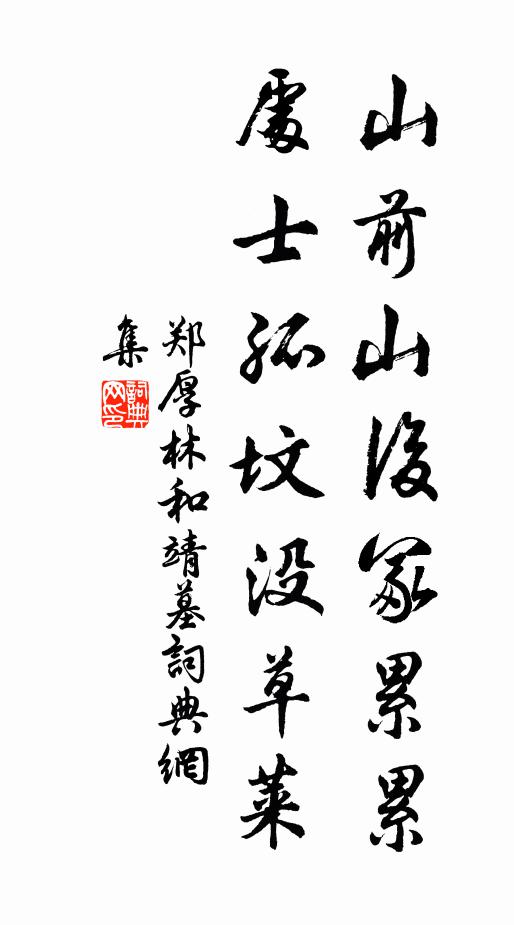 山前山後冢累累
處士孤坟没草莱
郑厚林和靖墓詞典網
集
詞典
网印